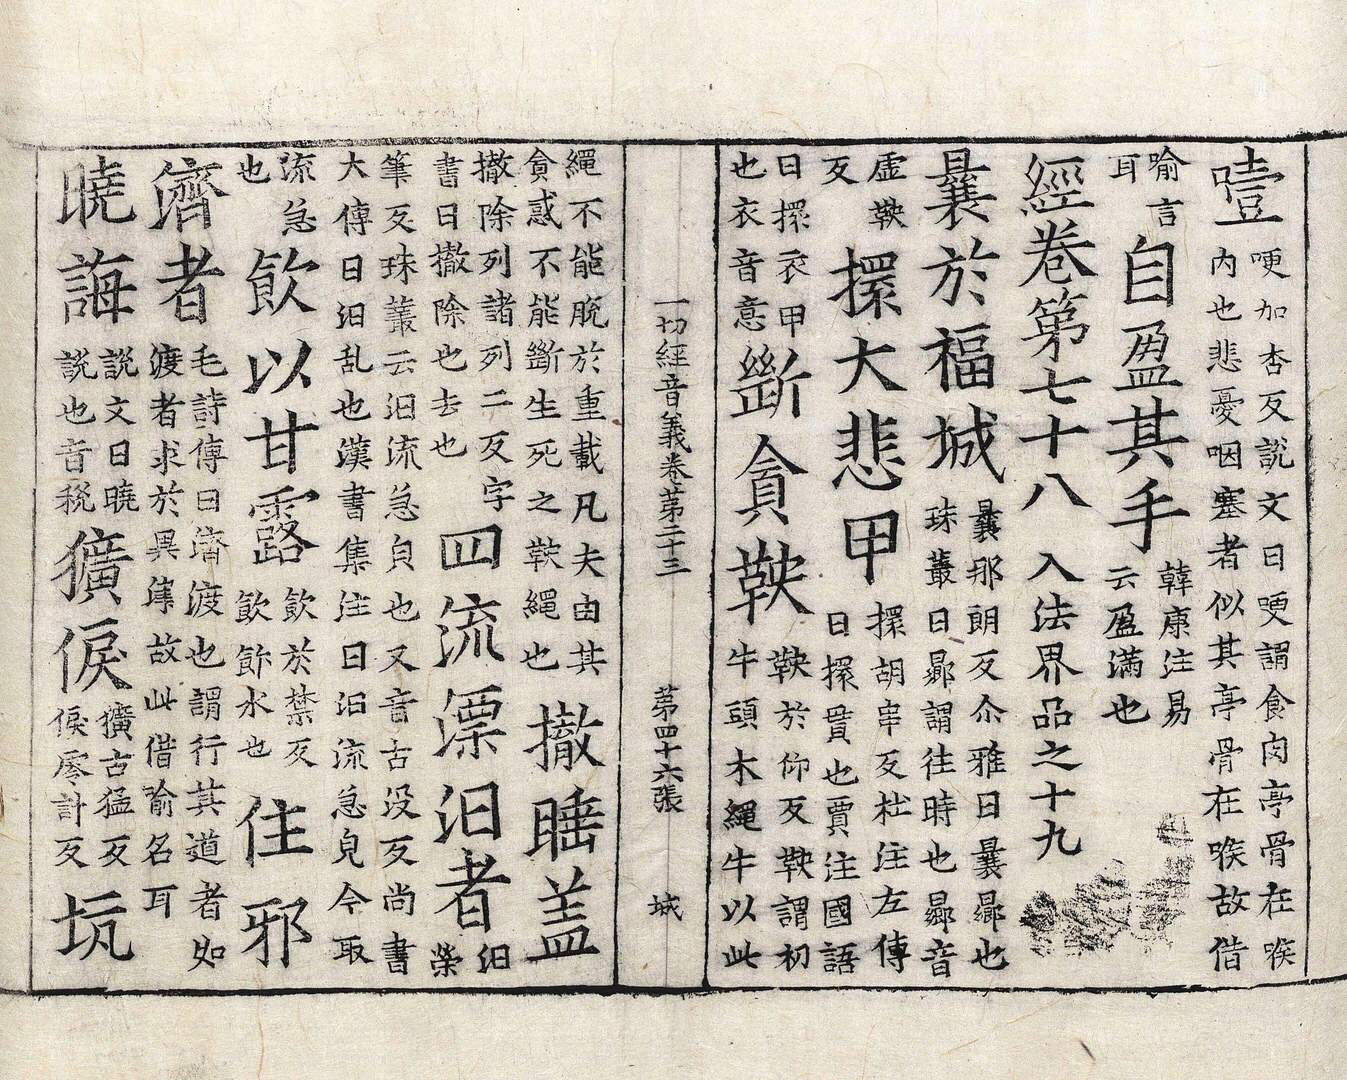 噎哽加杏反說文曰哽謂食肉亭骨在喉內也悲憂咽塞者似其亭骨在喉故借
喻言耳自盈其手韓康注易云盈滿也
經卷第七十八 入法界品之十九
曩於福城曩那朗反尒雅曰曩曏也珠叢曰曏謂往時也曏音
虛鞅反擐大悲甲擐胡串反杜注左傳曰擐貫也賈注國語
曰擐衣甲也衣音意斷貪鞅鞅於仰反鞅謂初牛頭木繩牛以此
一切經音義卷第二十三 第四十六張 城
繩不能脫於重載凡夫由其貪惑不能斷生死之鞅繩也撤睡盖
撤除列諸列二反字書曰撤除也去也四流漂汩者汩榮
筆反珠叢云汩流急皃也又音古没反尚書大傳曰汩乱也漢書集注曰汩流急皃今取
流急也飲以甘露飲於禁反飲飾水也住邪
濟者毛詩傳曰濟渡也謂行其道者如渡者求於異故此借喻名耳
曉誨說文曰曉說也音稅獷悷獷古猛反悷零計反坑